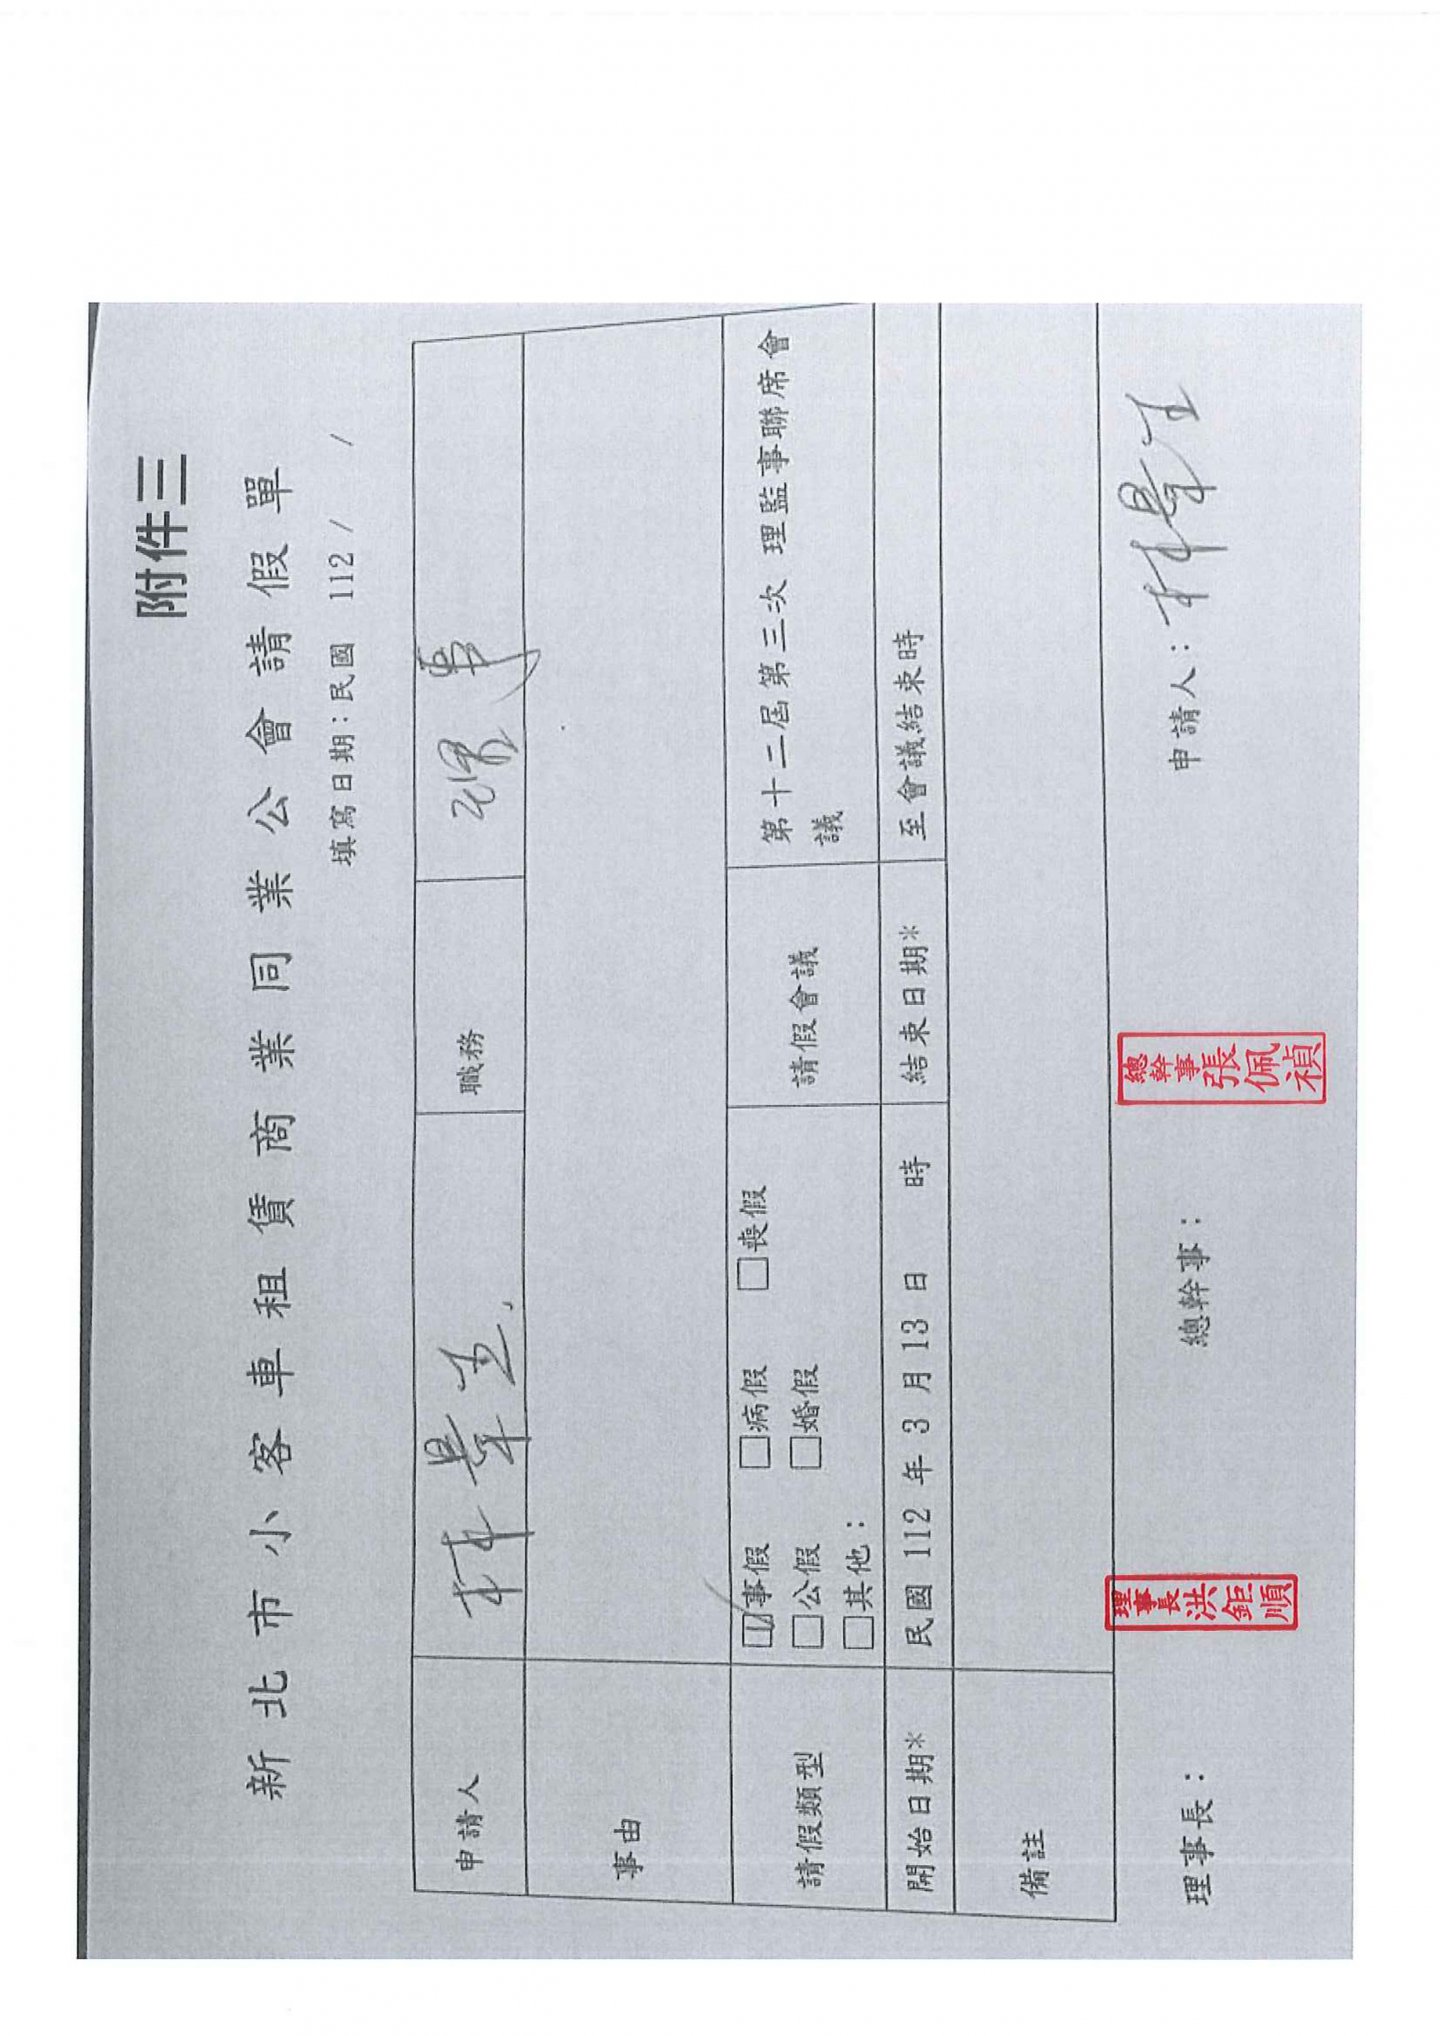 附件三
新北市小客車租賃商業同業公會請假單
填寫日期：民國 112 /  /
申請人 林 職務 理事
事由
請假類型 事假 病假 喪假 請假會議 第十二屆第三次 理監事聯席會
公假 婚假 議
其他：
開始日期* 民國 112 年 3 月 13 日 時 結束日期* 至會議結束時
備註
理事長： 理事長 洪鉅順 總幹事： 總幹事 張佩禎 申請人： 林